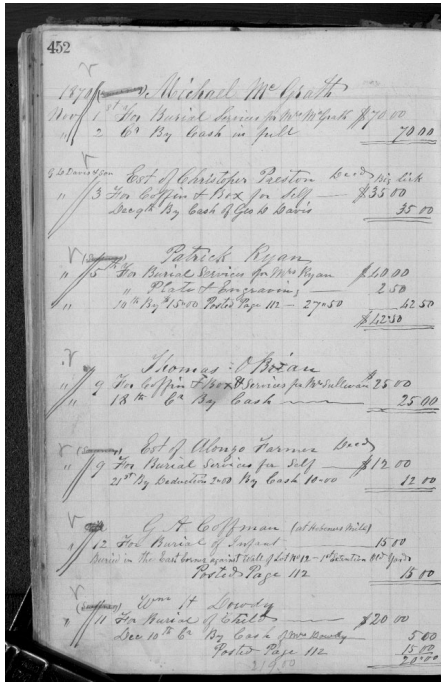 452
1870 Michael McGrath
Nov 1st For Burial Services for Mrs McGrath $70.00
" 2 Cr By Cash in full 70 00
Est of Christopher Preston Decd Big Lick
" 3 For Coffin & Box for Self — $35 00
Dec 9th By Cash of Geo D Davis 35 00
Patrick Ryan
" 5th For Burial Services for Mrs Ryan $40.00
" Plate & Engraving — 2 50
10th By $15=00 Posted Page 112 — 27=50 42 50
$42=50
Thomas O'
" 9 For Coffin & Box & Services for Mr Sullivan $25 00
" 18th Cr By Cash — 25 00
Est of Alonzo Farmer Decd
" 9 For Burial Services for Self — $12 00
21st By Deduction 2=00 By Cash 10=00 12 00
G A Coffman (at Hebners Mills)
" 12 For Burial of Infant 15 00
Buried in the East Corner against Wall of Lot No 12 - 1st Old Yard
Posted Page 112 15 00
Wm H Dowdy
" 11 For Burial of Child — $20 00
Dec 10th Cr By Cash of Mrs Dowdy 5 00
Posted Page 112 15 00
20=00